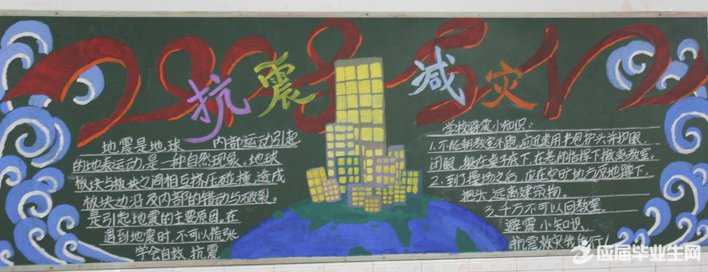 2008 5 12
抗震 减灾
地震是地球 内部运动引起
的地表运动,是一种自然现象,地球
板块与板块之间相互挤压碰撞,造成
板块边沿及内部的错动与破裂,
是引起地震的主要原因,在
遇到地震时,不可以慌张
学会自救,抗震
学校避震小知识:
闭眼,躲在桌子底下,在老师指挥下撤离教室。
2.到了操场之后,应在空旷地方原地蹲下,
抱头,远离建筑物。
3.千万不可以回教室。
避震小知识,
应届毕业生网
YJBYS.COM